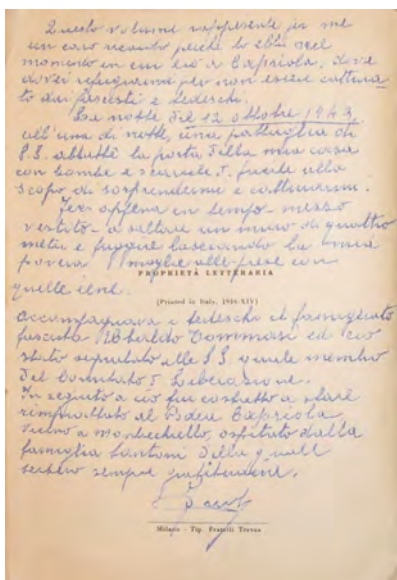 Questo volume rappresenta per me
un caro ricordo perché lo ebbi nel
momento in cui ero a Capriola, dove
dovei rifugiarmi per non essere cattura
to dai fascisti e tedeschi.
La notte del 12 ottobre 1943
all'una di notte, una pattuglia di
S.S. abbatté la porta della mia casa
con bombe e scariche di fucile allo
scopo di sorprendermi e catturarmi.
Feci appena in tempo - mezzo
vestito - a saltare un muro di quattro
metri e fuggire lasciando la mia
povera moglie alle prese con
PROPRIETÀ LETTERARIA
quelle iene.
[Printed in Italy, 1936-XIV]
Accompagnava i tedeschi il famigerato
fascista Tommasi ed ero
stato segnalato alle SS quale membro
del Comitato di Liberazione.
In seguito a ciò fui costretto a stare
rimpiattato al Podere Capriola
vicino a , ospitato dalla
famiglia Santoni della quale
serberò sempre gratitudine.
Milano - Tip. Fratelli Treves